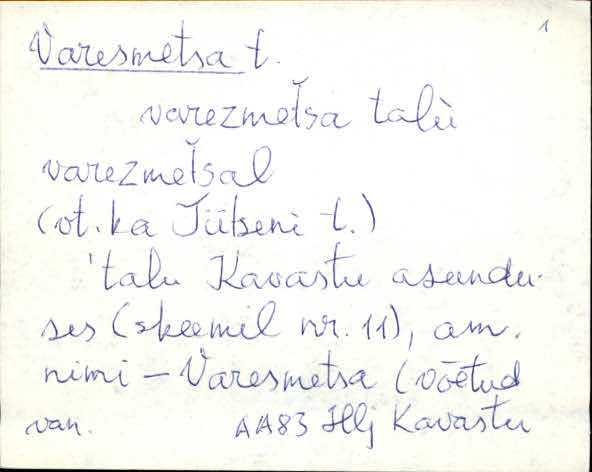 1
Varesmetsa t.
varezmeťsa talù
varezmeťsal
(vt. ka Tiitseni t.)
'talu Kavastu asundu-
ses (skeemil nr. 11), am.
nimi – Varesmetsa (võetud
van. AA83 Hlj Kavastu